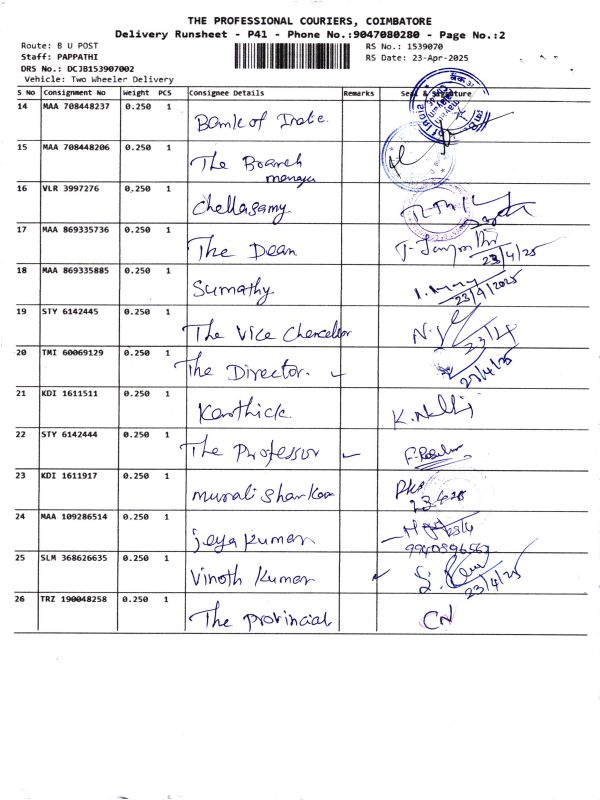 THE PROFESSIONAL COURIERS, COIMBATORE
Delivery Runsheet - P41 - Phone No.:9047080280 - Page No.:2
Route: B U POST
RS No.: 1539070
Staff: PAPPATHI
RS Date: 23-Apr-2025
DRS No.: DCJB153907002
Vehicle: Two Wheeler Delivery
S No Consignment No Weight PCS Consignee Details Remarks Seal & Signature
14 MAA 708448237 0.250 1
Bank of India.
15 MAA 708448206 0.250 1
The Branch
manager
16 VLR 3997276 0.250 1
Chellasamy
17 MAA 869335736 0.250 1
The Dean
23/4/25
18 MAA 869335885 0.250 1
Sumathy
23/4/2025
19 STY 6142445 0.250 1
The Vice Chancellor
23/4
20 TMI 60069129 0.250 1
The Director.
23/4/25
21 KDI 1611511 0.250 1
Karthick
22 STY 6142444 0.250 1
The Professor
23 KDI 1611917 0.250 1
murali Shankar
24 MAA 109286514 0.250 1
jeya kumar
25 SLM 368626635 0.250 1
Vinoth Kumar
23/4/25
26 TRZ 190048258 0.250 1
The Provincial
CN